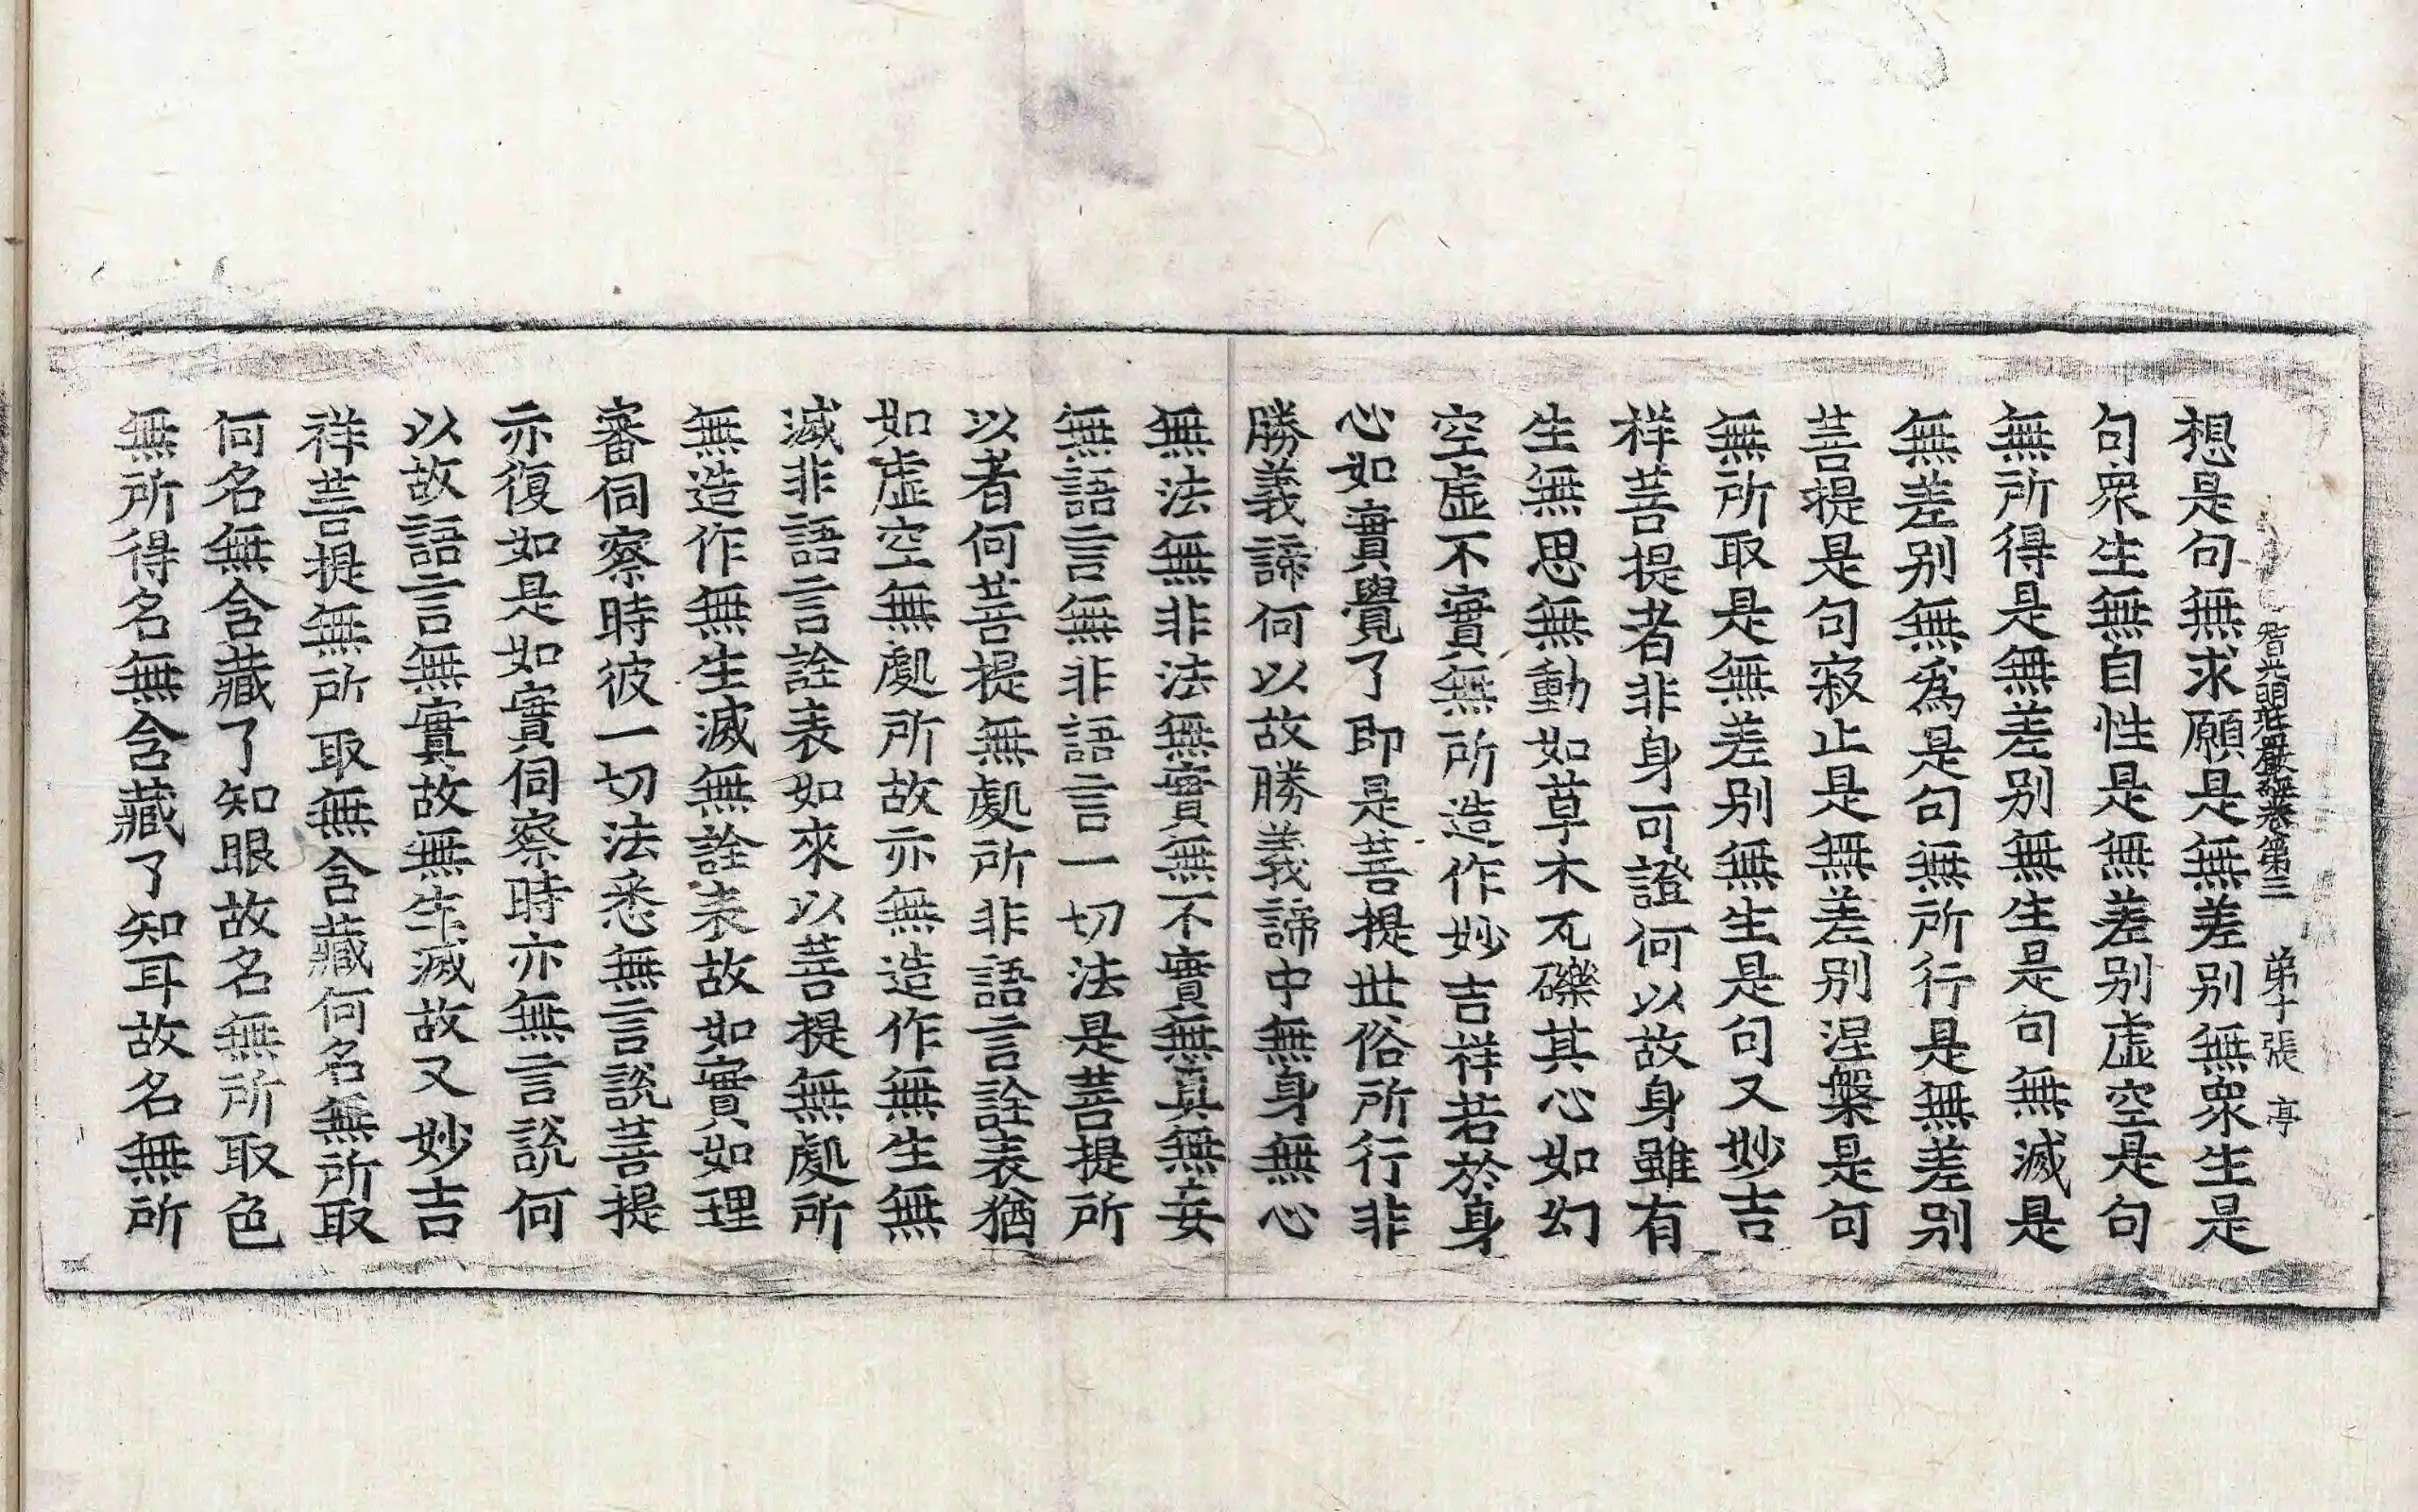 智光明莊嚴經卷第三 第十張 亭
想是句無求願是無差别無衆生是
句衆生無自性是無差别虛空是句
無所得是無差别無生是句無滅是
無差别無爲是句無所行是無差别
菩提是句寂止是無差别涅槃是句
無所取是無差别無生是句又妙吉
祥菩提者非身可證何以故身雖有
生無思無動如草木瓦礫其心如幻
空虛不實無所造作妙吉祥若於身
心如實覺了即是菩提世俗所行非
勝義諦何以故勝義諦中無身無心
無法無非法無實無不實無真無妄
無語言無非語言一切法是菩提所
以者何菩提無處所非語言詮表猶
如虛空無處所故亦無造作無生無
滅非語言詮表如來以菩提無處所
無造作無生滅無詮表故如實如理
審伺察時彼一切法悉無言說菩提
亦復如是如實伺察時亦無言說何
以故語言無實故無生滅故又妙吉
祥菩提無所取無含藏何名無所取
何名無含藏了知眼故名無所取色
無所得名無含藏了知耳故名無所